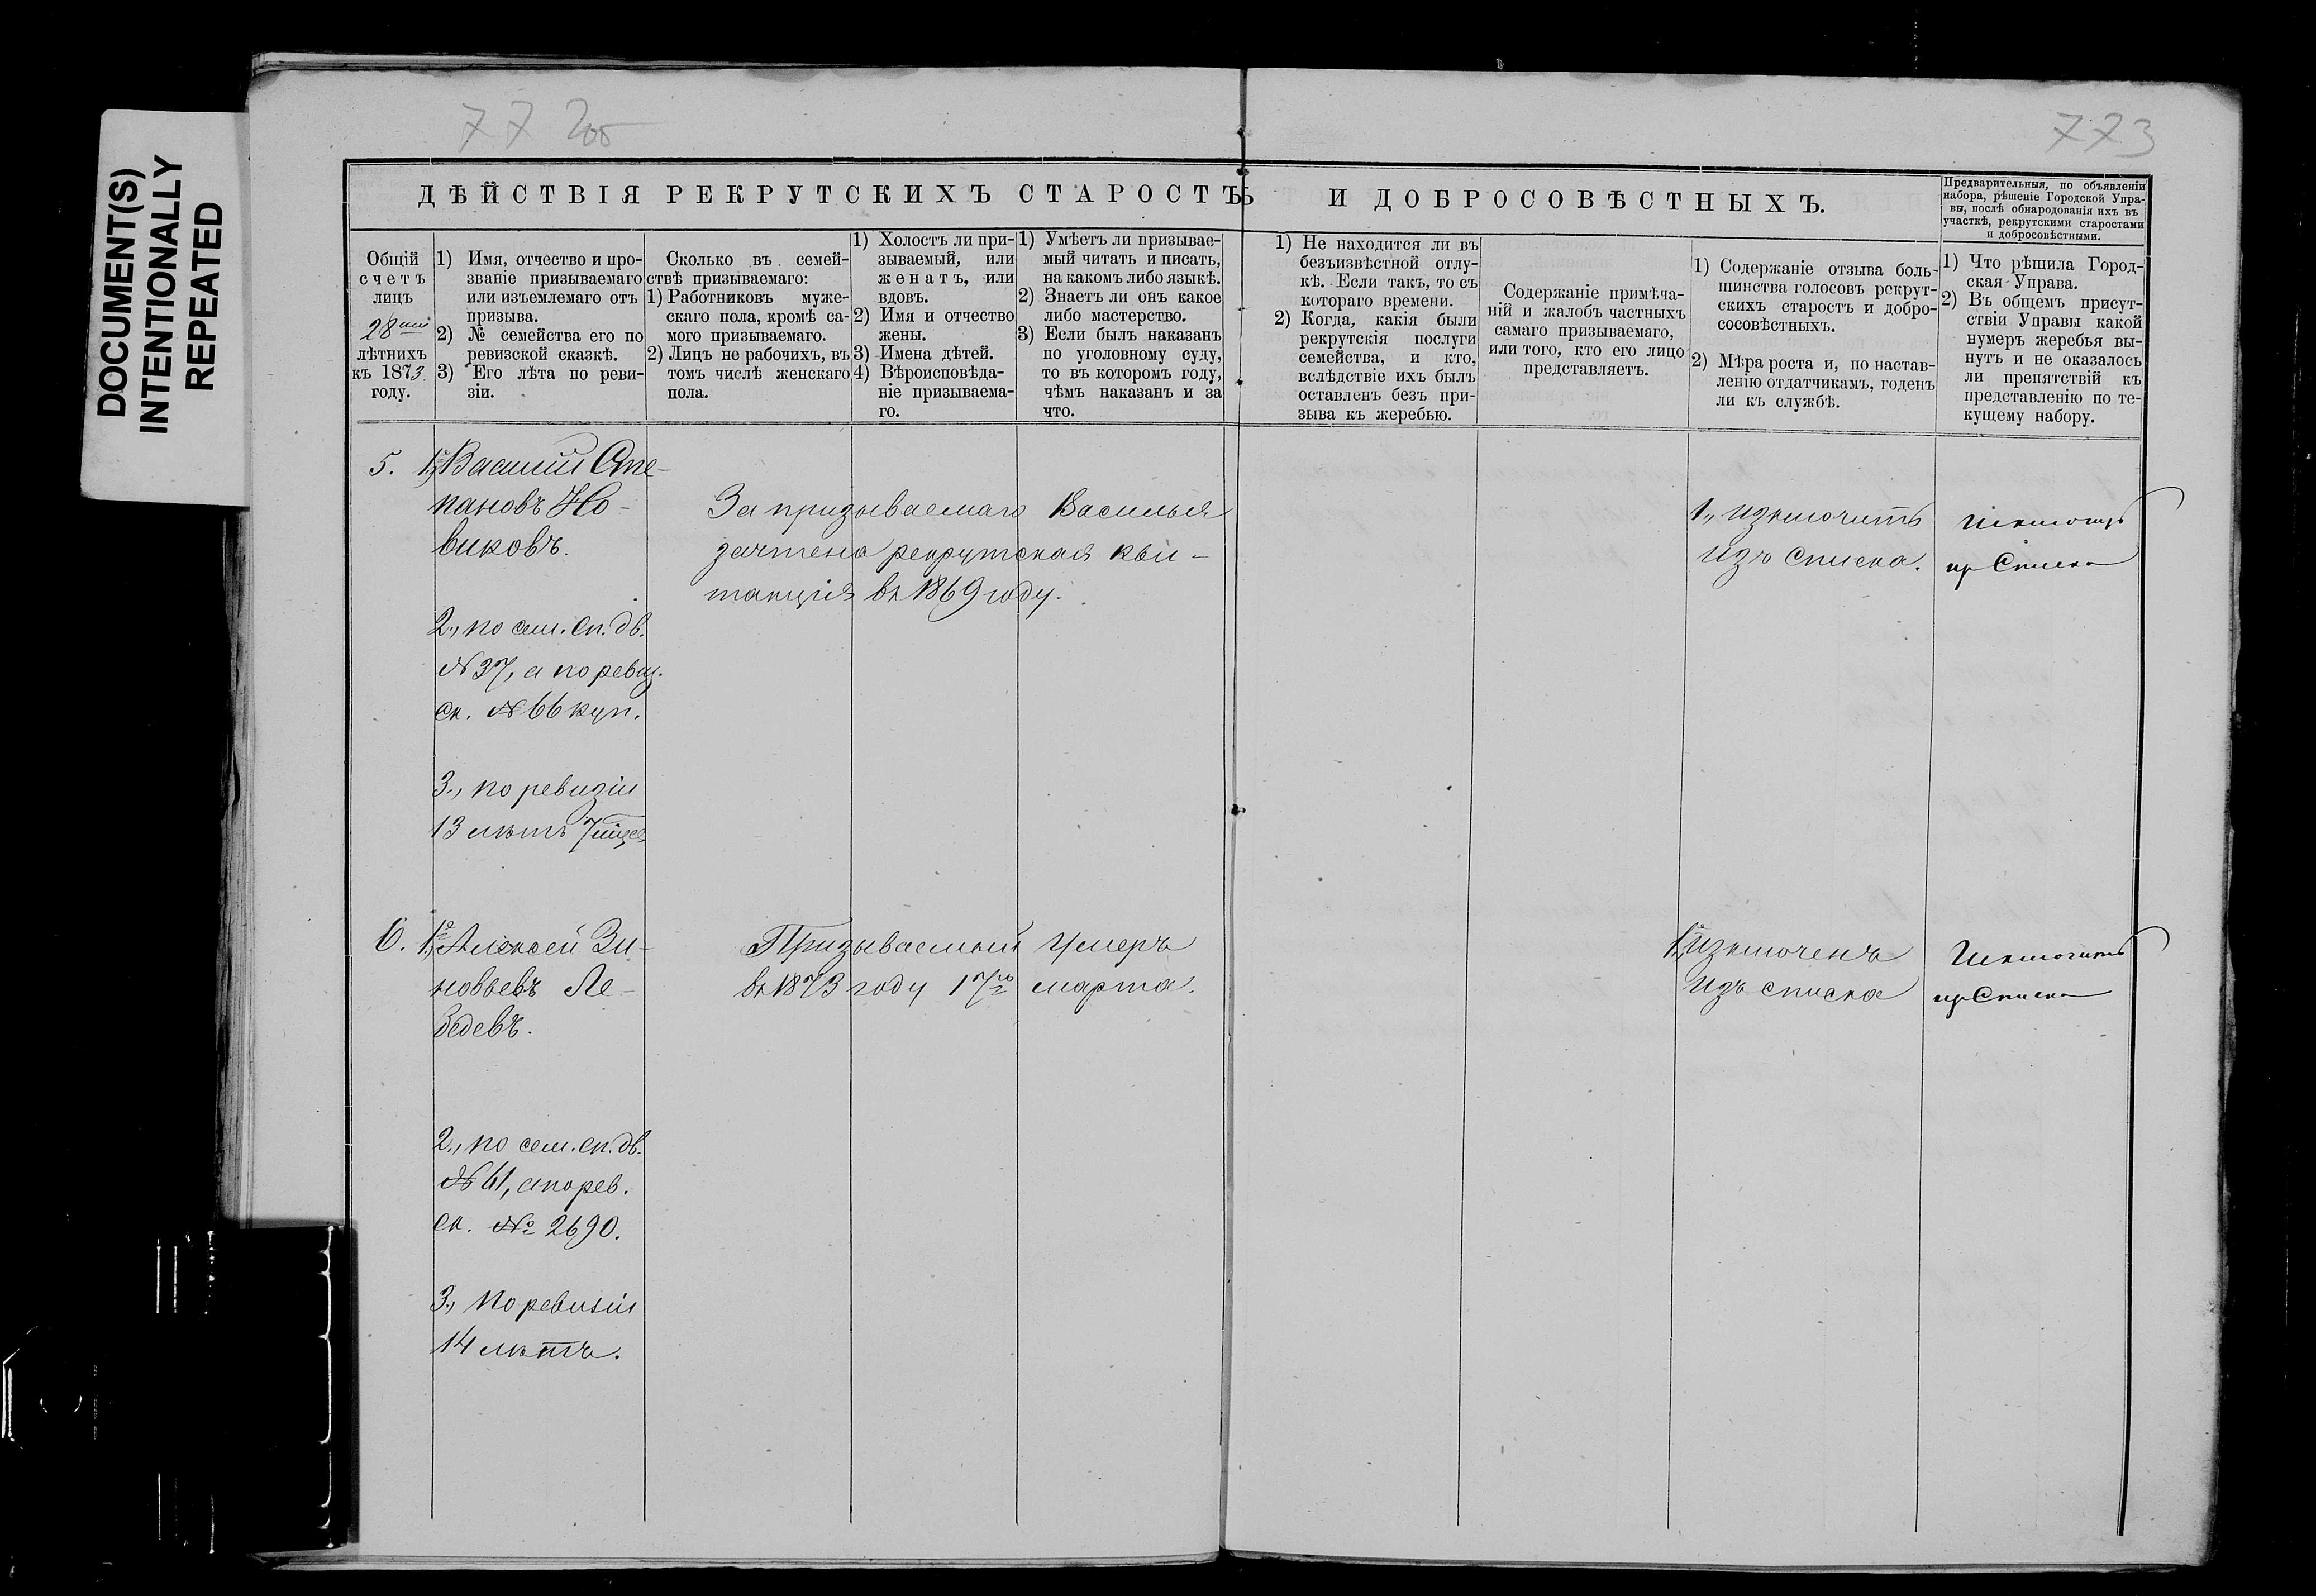 DOCUMENT(S)
INTENTIONALLY
REPEATED
77 2об
773
ДѢЙСТВІЯ РЕКРУТСКИХЪ СТАРОСТЪ
И ДОБРОСОВѢСТНЫХЪ.
Предварительныя, по объявленіи
набора, рѣшеніе Городской Упра-
вы, послѣ обнародованія ихъ въ
участкѣ, рекрутскими старостами
и добросовѣстными.
Общій
счетъ
лицъ
28ми
лѣтнихъ
къ 1873
году.
1) Имя, отчество и про-
званіе призываемаго
или изъемлемаго отъ
призыва.
2) № семейства его по
ревизской сказкѣ.
3) Его лѣта по реви-
зіи.
Сколько въ семей-
ствѣ призываемаго:
1) Работниковъ муже-
скаго пола, кромѣ са-
мого призываемаго.
2) Лицъ не рабочихъ, въ
томъ числѣ женскаго
пола.
1) Холостъ ли при-
зываемый, или
женатъ, или
вдовъ.
2) Имя и отчество
жены.
3) Имена дѣтей.
4) Вѣроисповѣда-
ніе призываема-
го.
1) Умѣетъ ли призывае-
мый читать и писать,
на какомъ либо языкѣ.
2) Знаетъ ли онъ какое
либо мастерство.
3) Если былъ наказанъ
по уголовному суду,
то въ которомъ году,
чѣмъ наказанъ и за
что.
1) Не находится ли въ
безъизвѣстной отлу-
кѣ. Если такъ, то съ
котораго времени.
2) Когда, какія были
рекрутскія послуги
семейства, и кто,
вслѣдствіе ихъ былъ
оставленъ безъ при-
зыва къ жеребью.
Содержаніе примѣча-
ній и жалобъ частныхъ
самаго призываемаго,
или того, кто его лицо
представляетъ.
1) Содержаніе отзыва боль-
шинства голосовъ рекрут-
скихъ старостъ и добро-
сосовѣстныхъ.
2) Мѣра роста и, по настав-
ленію отдатчикамъ, годенъ
ли къ службѣ.
1) Что рѣшила Город-
ская Управа.
2) Въ общемъ присут-
ствіи Управы какой
нумеръ жеребья вы-
нутъ и не оказалось
ли препятствій къ
представленію по те-
кущему набору.
5. 1., Василій Сте-
пановъ Но-
виковъ.
2., по сем. сп. дв.
№ 37, а по ревиз.
ск. № 66 куп.
3., по ревизіи
13 лѣтъ 7 мѣс.
За призываемаго Василья
зачтена рекрутская кви-
танція въ 1869 году.
1., изключить
изъ списка.
Исключить
изъ Списка
6. 1., Алексей Зи-
новьевъ Ле-
бедевъ.
2., по сем. сп. дв.
№ 61, а по рев.
ск. № 2690.
3., по ревизіи
14 лѣтъ.
Призываемый умеръ
въ 1873 году 17го марта.
1., изключенъ
изъ списка
Исключить
изъ Списка